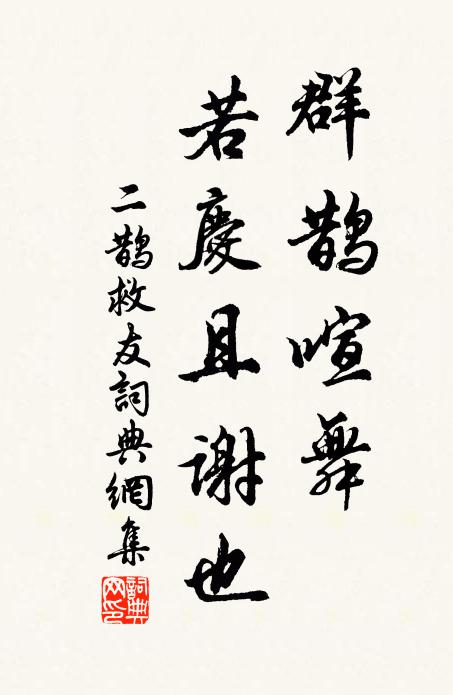 群鵲喧舞
若慶且謝也
二鵲救友詞典網集
詞典网印